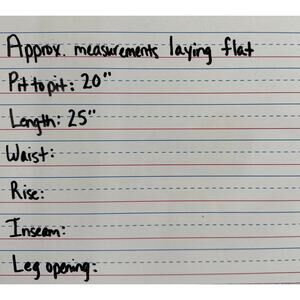 Approx. measurements laying flat
Pit to pit: 20"
Length: 25"
Waist:
Rise:
Inseam:
Leg opening: